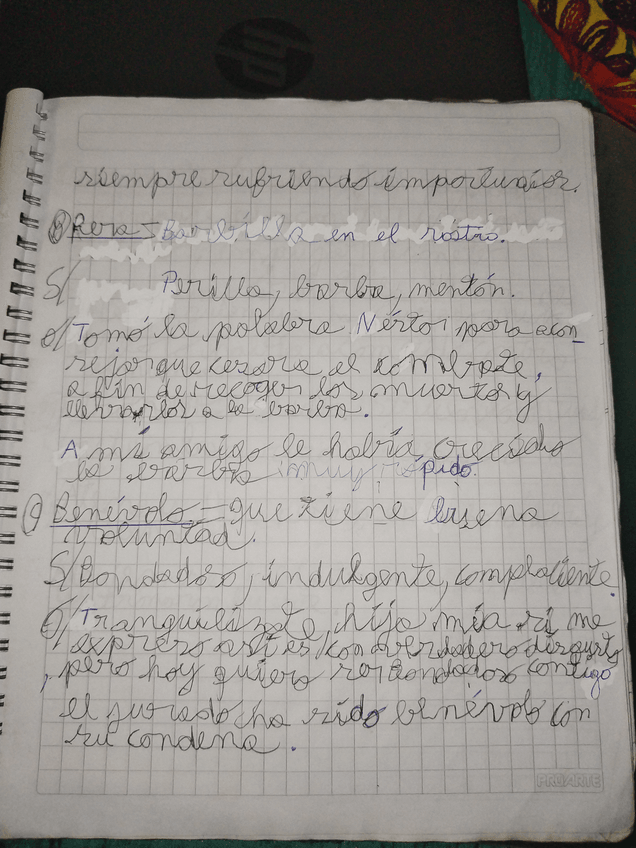 siempre sufriendo importunios.
B) Pera = Barbilla en el rostro.
S/ Perilla, barba, mentón.
O/ Tomó la palabra Néstor para acon_
sejar que cesara el combate,
a fin de recoger los muertos y
llevarlos a la barba.
A mi amigo le había crecido
la barba muy rápido.
C) Benévolo = que tiene buena
voluntad.
S/ Bondadoso, indulgente, complaciente.
O/ Tranquilízate, hija mía si me
expreso así es con verdadero disgusto
, pero hoy quiero ser Bondadoso contigo
el jurado ha sido benévolo con
su condena.
PROARTE
hp